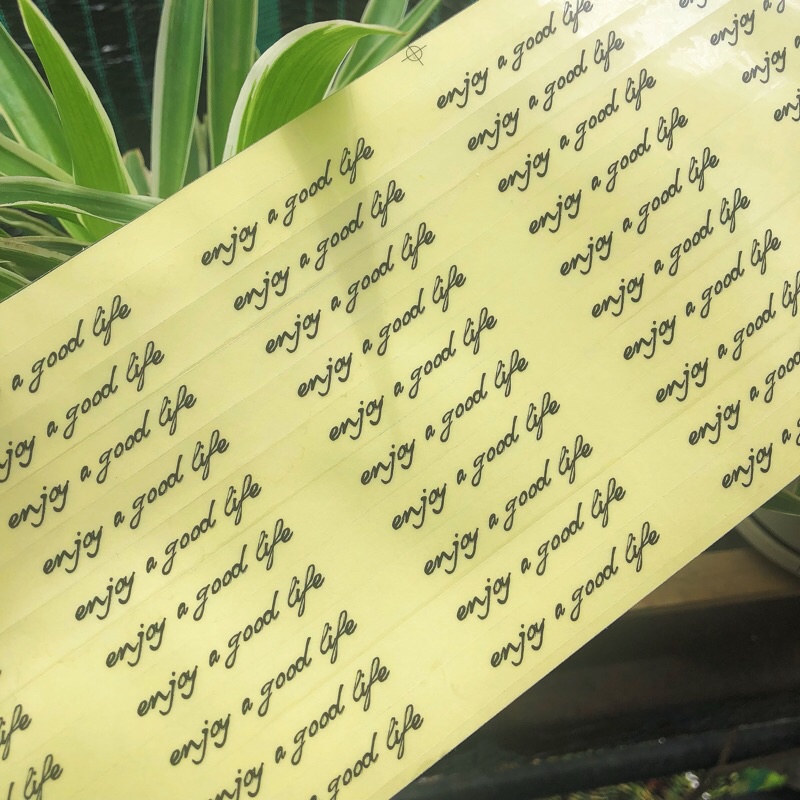 life
life
a good life
joy a good life
enjoy a good life
enjoy a good life
enjoy a good life
enjoy a good life
enjoy a good life
enjoy a good life
enjoy a good life
a good life
enjoy a good life
enjoy a good life
enjoy a good life
enjoy a good life
enjoy a good life
enjoy a good life
enjoy a good life
enjoy a good life
enjoy a good life
enjoy a good life
enjoy a good life
enjoy a good life
enjoy a good life
enjoy a good life
enjoy a good life
enjoy a good life
enjoy a good life
enjoy a good life
enjoy a good
enjoy a
enjoy a
enjoy